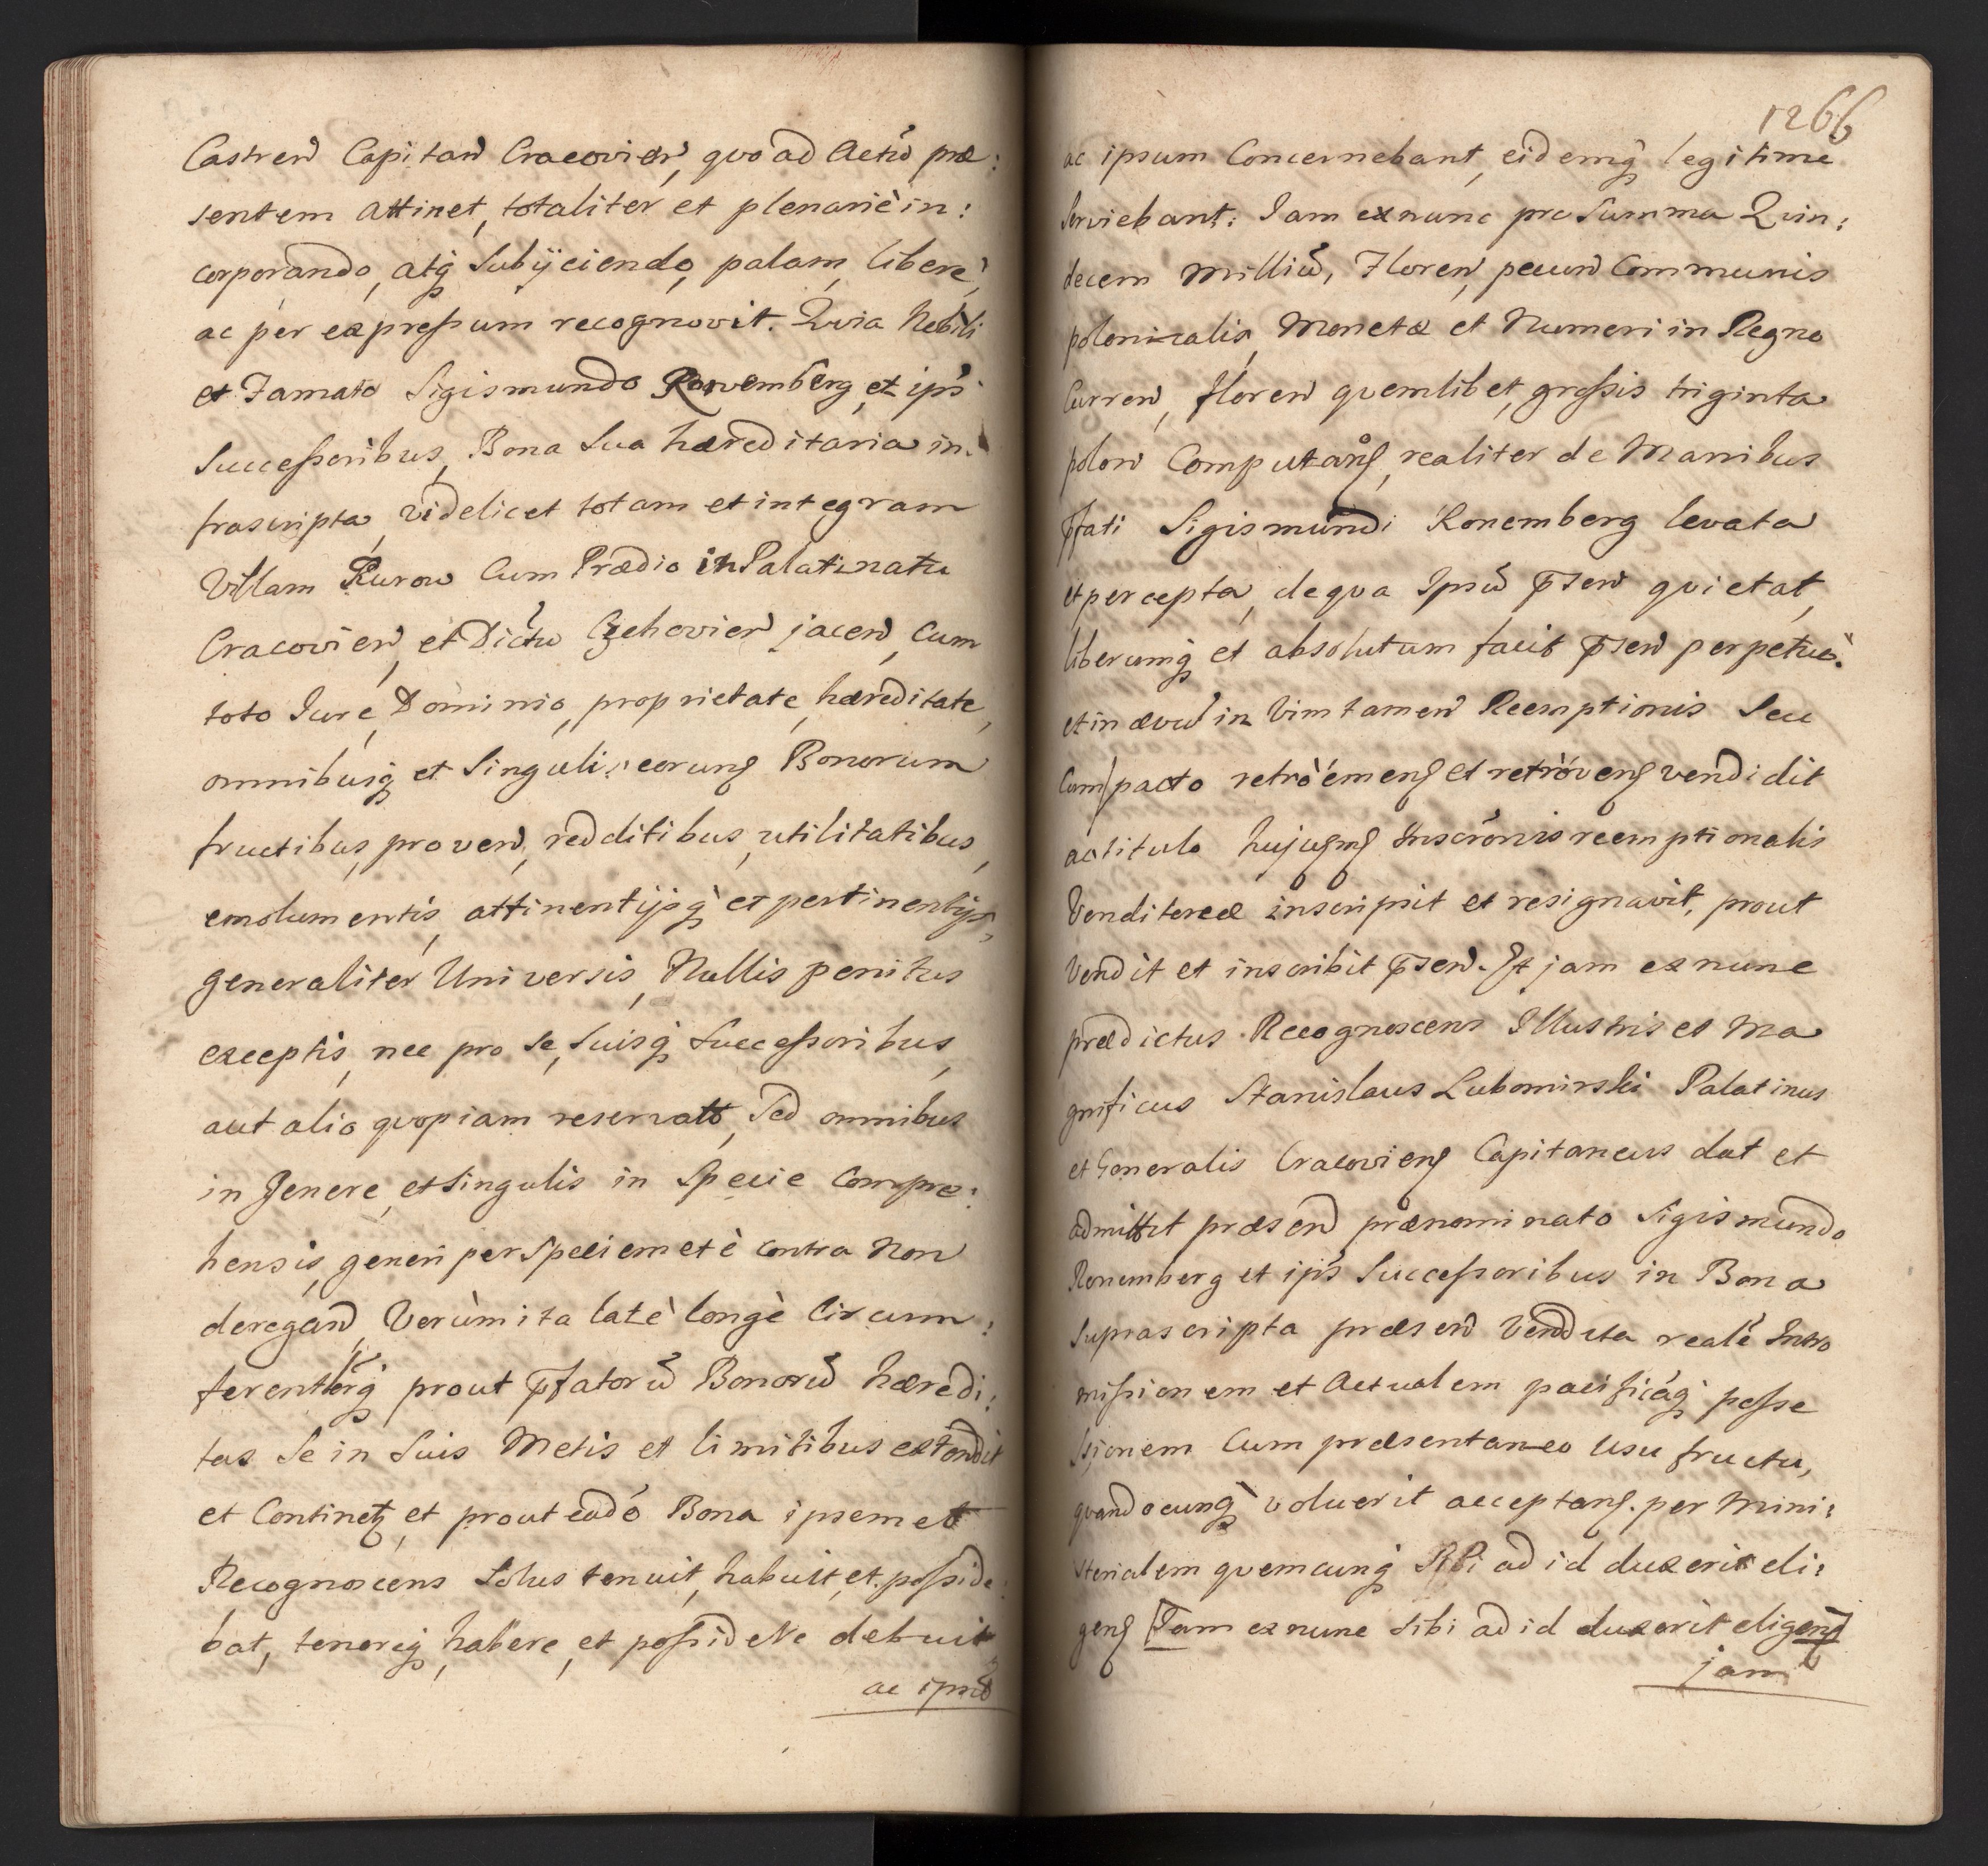 Castren Capitan Cracovien, quo ad Actū præ:
sentem attinet, totaliter et plenariè in:
corporando, atq̃ Subÿciendo, palam, libere,
ac per expreſsum recognovit. Quia Nobili
et Famato Sigismundo Ronemberg et ips̄
Succeſsoribus, Bona Sua hæreditaria in:
frascripta, videlicet totam et integram
Villam Kurow Cum Prædio in Palatinatu
Cracovien, et Dictu Czchovien jacen, Cum
toto Iure, Dominio, proprietate, hæreditate,
omnibusq̃ et Singulis eorung Bonorum
fructibus, proven, redditibus, utilitatibus,
emolumentis, attinentijsq̃ et pertinentijs,
generaliter Universis, Nullis penitus
exceptis, nec pro Se, Suisq̃ Succeſsoribus,
aut alio quopiam reservatis, Sed omnibus
in Genere, et Singulis in Specie Compre:
hensis, generi per Speciem et è contra Non
deregan, Verùm ita latè longè Circum:
ferentierq̃ prout p̄fatorū Bonorū hæredi:
tas Se in Suis Metis et limitibus extendit
et Continet, et prout eadē Bona ipsemet
Recognoscens Solus tenuit, habuit, et poſside:
bat, tenereq̃, habere, et poſsidere debuit
ac ipsū
1266
ac ipsum Concernebant, eidemq̃ legitime
Serviebant: Iam ex nunc pro Summa Quin:
decem Milliū, Floren, pecun Communis
polonicalis, Monetæ et Numeri in Regno
Curren, floren quemlibet, groſsis triginta
polon Computan̄, realiter de Manibus
p̄fati Sigismundi Ronemberg levata
et percepta, de qua Ipsū p̄sen quietat,
liberumq̃ et absolutum facit p̄sen perpetuè
et in ævū in Vim tamen Reemptionis Seu
Cum pacto retròemen̄ et retròven̄ vendidit
ac titulo hujusm̄ Inscrōnis reemptionalis
Venditoreæ inscripsit et resignavit, prout
Vendit et inscribit p̄sen. Et jam ex nunc
prædictus Recognoscens Illustris et Ma
gnificus Stanislaus Lubomirski Palatinus
et Generalis Cracovien̄ Capitaneus dat et
admittit præsen prænominato Sigismundo
Ronemberg et ips̄ Succeſsoribus in Bona
Suprascripta præsen Vendita realē Intro
miſsionem et Actualem pacificāq̃ poſse
ſsionem Cum præsentaneo Usu fructu,
quandocunq̃ voluerit acceptan̄. per Mini:
sterialem quemcunq̃ Sibi ad id duxerit eli:
gen̄ [Iam ex nunc Sibi ad id duxerit eligen̄]
jam